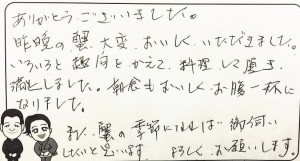 ありがとうございました。
昨晩の蟹、大変、おいしくいただきました。
いろいろと趣向をかえて、料理して頂き
満足しました。朝食もおいしくお腹一杯に
なりました。
また、蟹の季節になれば御伺い
したいと思います よろしくお願いします。